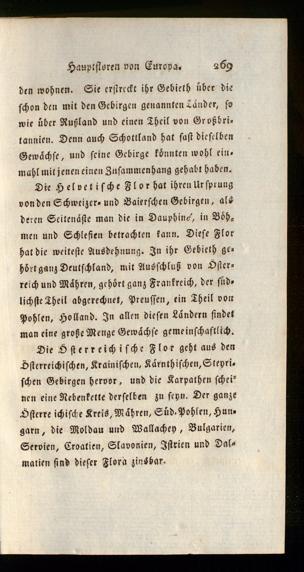 Hauptfloren von Europa. 269
den wohnen. Sie erstreckt ihr Gebieth über die
schon den mit den Gebirgen genannten Länder, so
wie über Rußland und einen Theil von Großbri-
tannien. Denn auch Schottland hat fast dieselben
Gewächse, und seine Gebirge könnten wohl ein-
mahl mit jenen einen Zusammenhang gehabt haben.
Die Helvetische Flor hat ihren Ursprung
von den Schweizer- und Baierschen Gebirgen, als
deren Seitenäste man die in Dauphiné, in Böh-
men und Schlesien betrachten kann. Diese Flor
hat die weiteste Ausdehnung. In ihr Gebieth ge-
hört ganz Deutschland, mit Ausschluß von Öster-
reich und Mähren, gehört ganz Frankreich, der süd-
lichste Theil abgerechnet, Preussen, ein Theil von
Pohlen, Holland. In allen diesen Ländern findet
man eine große Menge Gewächse gemeinschaftlich.
Die Österreichische Flor geht aus den
Österreichischen, Krainischen, Kärnthischen, Steyri-
schen Gebirgen hervor, und die Karpathen schei-
nen eine Nebenkette derselben zu seyn. Der ganze
Österre ichische Kreis, Mähren, Süd-Pohlen, Hun-
garn, die Moldau und Wallachey, Bulgarien,
Servien, Croatien, Slavonien, Istrien und Dal-
matien sind dieser Flora zinsbar.